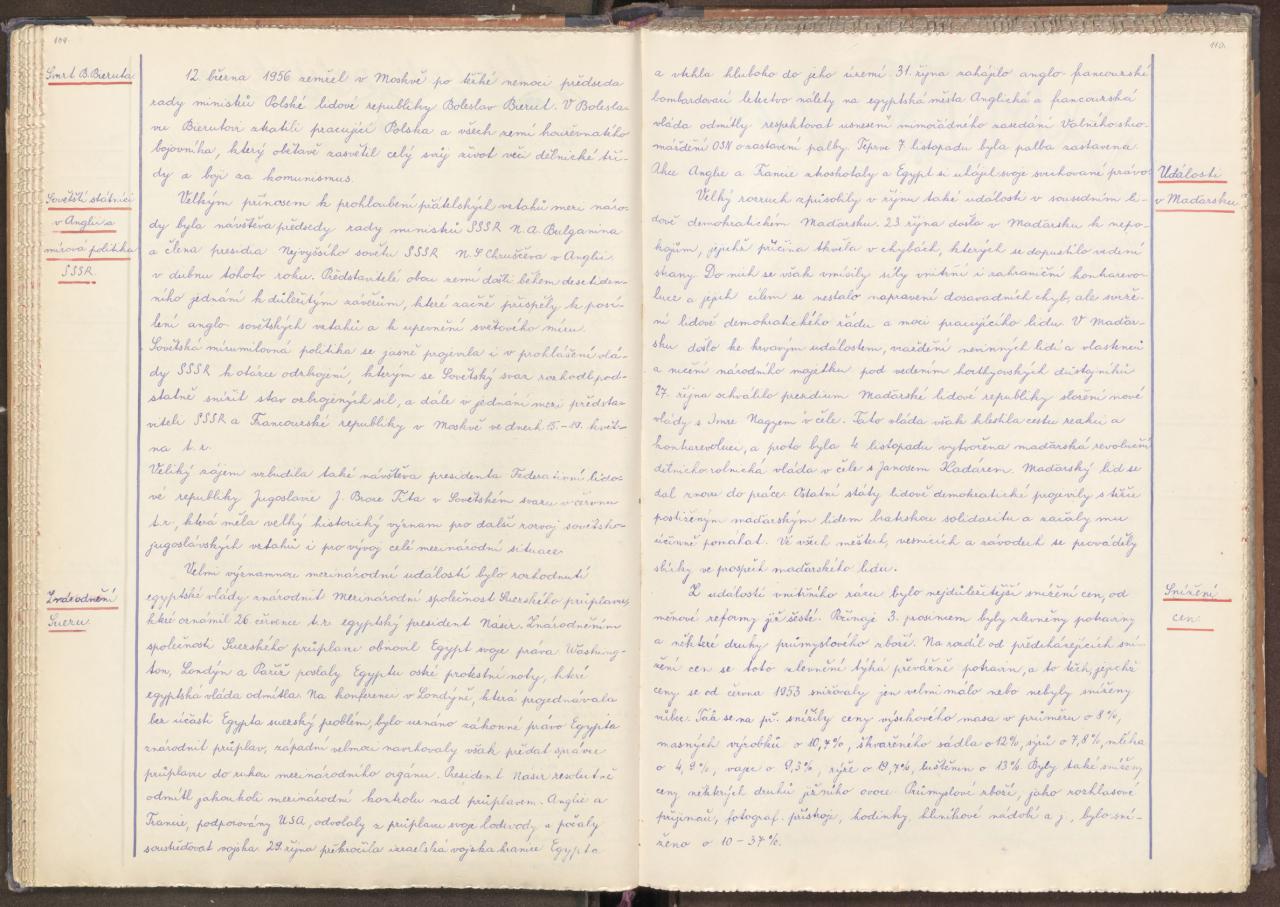 109.
Smrt B. Bieruta
12. března 1956 zemřel v Moskvě po těžké nemoci předseda
rady ministrů Polské lidové republiky Boleslav Bierut. V Bolesla-
vu Bierutovi ztratili pracující Polska a všech zemí houževnatého
bojovníka, který obětavě zasvětil celý svůj život věci dělnické tří-
dy a boji za komunismus.
Sovětští státníci
v Anglii a
mírová politika
SSSR.
Velkým přínosem k prohloubení přátelských vztahů mezi náro-
dy byla návštěva předsedy rady ministrů SSSR N. A. Bulganina
a člena presidia Nejvyššího sovětu SSSR N. S. Chruščeva v Anglii
v dubnu tohoto roku. Představitelé obou zemí došli během desetiden-
ního jednání k důležitým závěrům, které značně přispěly k posí-
lení anglo-sovětských vztahů a k upevnění světového míru.
Sovětská mírumilovná politika se jasně projevila i v prohlášení vlá-
dy SSSR k otázce odzbrojení, kterým se Sovětský svaz rozhodl pod-
statně snížit stav ozbrojených sil, a dále v jednání mezi představi-
viteli SSSR a Francouzské republiky v Moskvě ve dnech 15.-19. květ-
na t. r.
Veliký zájem vzbudila také návštěva presidenta Federativní lido-
vé republiky Jugoslavie J. Broze Tita v Sovětském svazu v červnu
t.r., která měla velký historický význam pro další rozvoj sovětsko-
jugoslávských vztahů i pro vývoj celé mezinárodní situace.
Znárodnění
Suezu.
Velmi významnou mezinárodní událostí bylo rozhodnutí
egyptské vlády znárodnit Mezinárodní společnost Suezského průplavu,
které oznámil 26. července t. r. egyptský president Násir. Znárodněním
společnosti Suezského průplavu obnovil Egypt svoje práva. Washing-
ton, Londýn a Paříž poslaly Egyptu ostré protestní noty, které
egyptská vláda odmítla. Na konferenci v Londýně, která projednávala
bez účasti Egypta suezský problém, bylo uznáno zákonné právo Egypta
znárodnit průplav, západní velmoci navrhovaly však předat správu
průplavu do rukou mezinárodního orgánu. President Násir resolutně
odmítl jakoukoli mezinárodní kontrolu nad průplavem. Anglie a
Francie, podporovány USA, odvolaly z průplavu svoje lodivody a počaly
soustřeďovat vojska. 29. října překročila izraelská vojska hranice Egypta
110.
a vtrhla hluboko do jeho území. 31. října zahájilo anglo-francouzské
bombardovací letectvo nálety na egyptská města. Anglická a francouzská
vláda odmítly respektovat usnesení mimořádného zasedání Valného shro-
máždění OSN o zastavení palby. Teprve 7. listopadu byla palba zastavena.
Akce Anglie a Francie ztroskotaly a Egypt si uhájil svoje svrchovaná práva.
Události
v Maďarsku
Velký rozruch způsobily v říjnu také události v sousedním li-
dově demokratickém Maďarsku. 23. října došlo v Maďarsku k nepo-
kojům, jejichž příčina tkvěla v chybách, kterých se dopustilo vedení
strany. Do nich se však vmísily síly vnitřní i zahraniční kontrarevo-
luce a jejich cílem se nestalo napravení dosavadních chyb, ale svrže-
ní lidově demokratického řádu a moci pracujícího lidu. V Maďar-
sku došlo ke krvavým událostem, vraždění nevinných lidí a vlastenců
a ničení národního majetku pod vedením horthyovských důstojníků.
27. října schválilo presidium Maďarské lidové republiky složení nové
vlády s Imre Nagyem v čele. Tato vláda však klestila cestu reakci a
kontrarevoluci, a proto byla 4. listopadu vytvořena maďarská revoluční
dělnicko rolnická vláda v čele s Janosem Kadárem. Maďarský lid se
dal znovu do práce. Ostatní státy lidově demokratické projevily s těžce
postiženým maďarským lidem bratrskou solidaritu a začaly mu
účinně pomáhat. Ve všech městech, vesnicích a závodech se prováděly
sbírky ve prospěch maďarského lidu.
Snížení
cen
Z událostí vnitřního rázu bylo nejdůležitější snížení cen, od
měnové reformy již šesté. Počínaje 3. prosincem byly zlevněny potraviny
a některé druhy průmyslového zboží. Na rozdíl od předcházejících sní-
žení cen se toto zlevnění týká převážně potravin, a to těch, jejichž
ceny se od června 1953 snižovaly jen velmi málo nebo nebyly sníženy
vůbec. Tak se na př. snížily ceny výsekového masa v průměru o 8%,
masných výrobků o 10,4%, škvařeného sádla o 12%, sýrů o 7,8%, mléka
o 4,9%, vajec o 9,3%, rýže o 19,7%, luštěnin o 13%. Byly také sníženy
ceny některých druhů jižního ovoce. Průmyslové zboží, jako rozhlasové
přijímače, fotograf. přístroje, hodinky, hliníkové nádobí a j., bylo sní-
ženo o 10-37%.